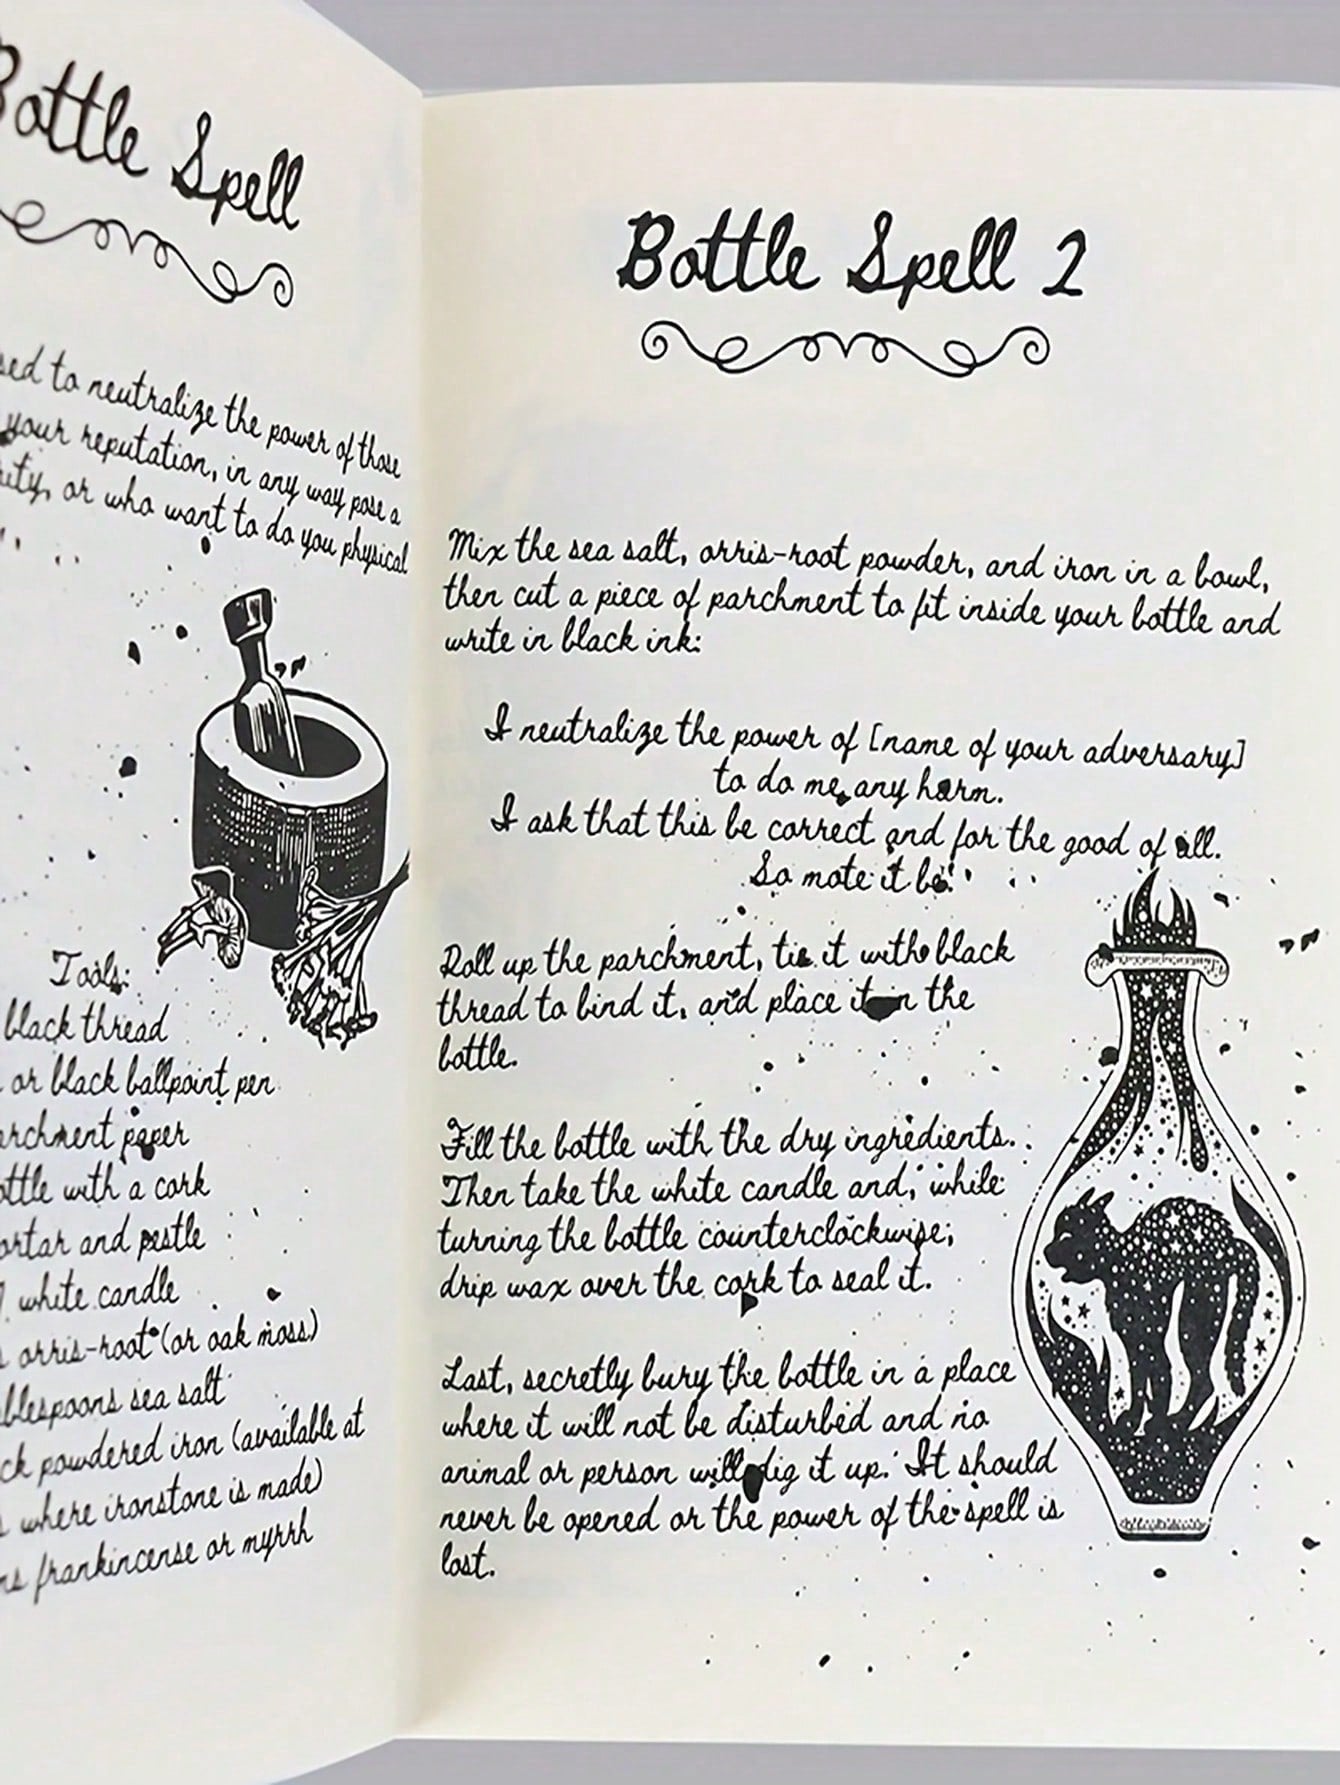 Bottle Spell
to neutralize the power of those
your reputation, in any way pose a
or who want to do you physical
Tools:
black thread
or black ballpoint pen
paper
with a cork
and pestle
white candle
orris-root (or oak moss)
sea salt
powdered iron (available at
where ironstone is made)
frankincense or myrrh
Bottle Spell 2
Mix the sea salt, orris-root powder, and iron in a bowl,
then cut a piece of parchment to fit inside your bottle and
write in black ink:
I neutralize the power of [name of your adversary]
to do me any harm.
I ask that this be correct and for the good of all.
So mote it be!
Roll up the parchment, tie it with black
thread to bind it, and place it in the
bottle.
Fill the bottle with the dry ingredients.
Then take the white candle and, while
turning the bottle counterclockwise,
drip wax over the cork to seal it.
Last, secretly bury the bottle in a place
where it will not be disturbed and no
animal or person will dig it up. It should
never be opened or the power of the spell is
lost.